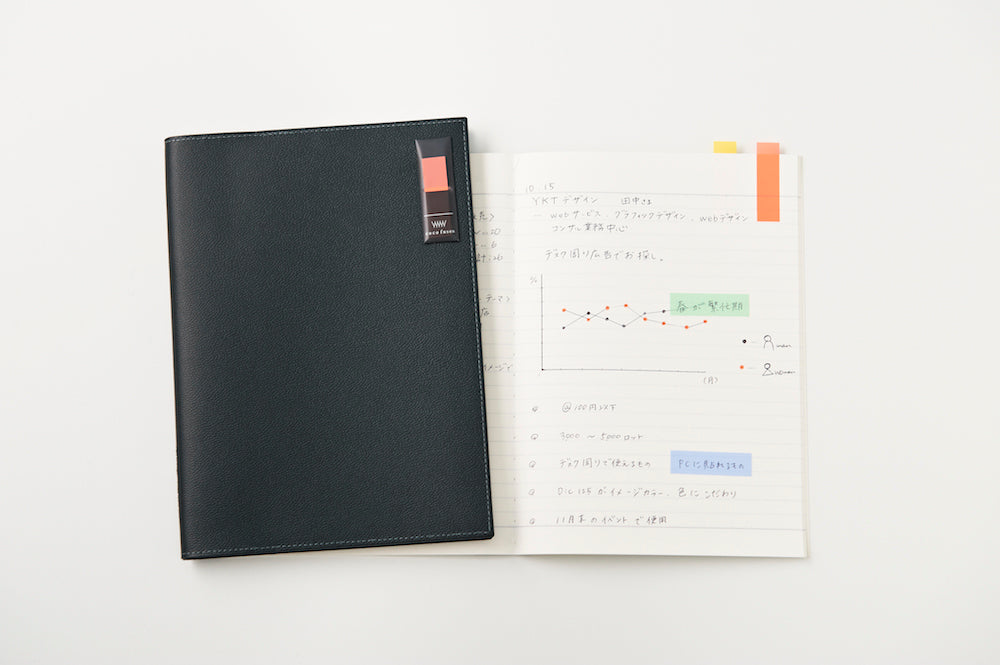 coco fusen
10.15
YKTデザイン 田中さま
― webサービス、グラフィックデザイン、webデザイン
コンサル業務中心
デスク周り広告でお探し。
%
春が繁忙期
man
woman
(月)
@100円以下
3000 〜 5000ロット
デスク周りで使えるもの
PCに貼れるもの
DIC 125がイメージカラー、色にこだわり
11月末のイベントで使用